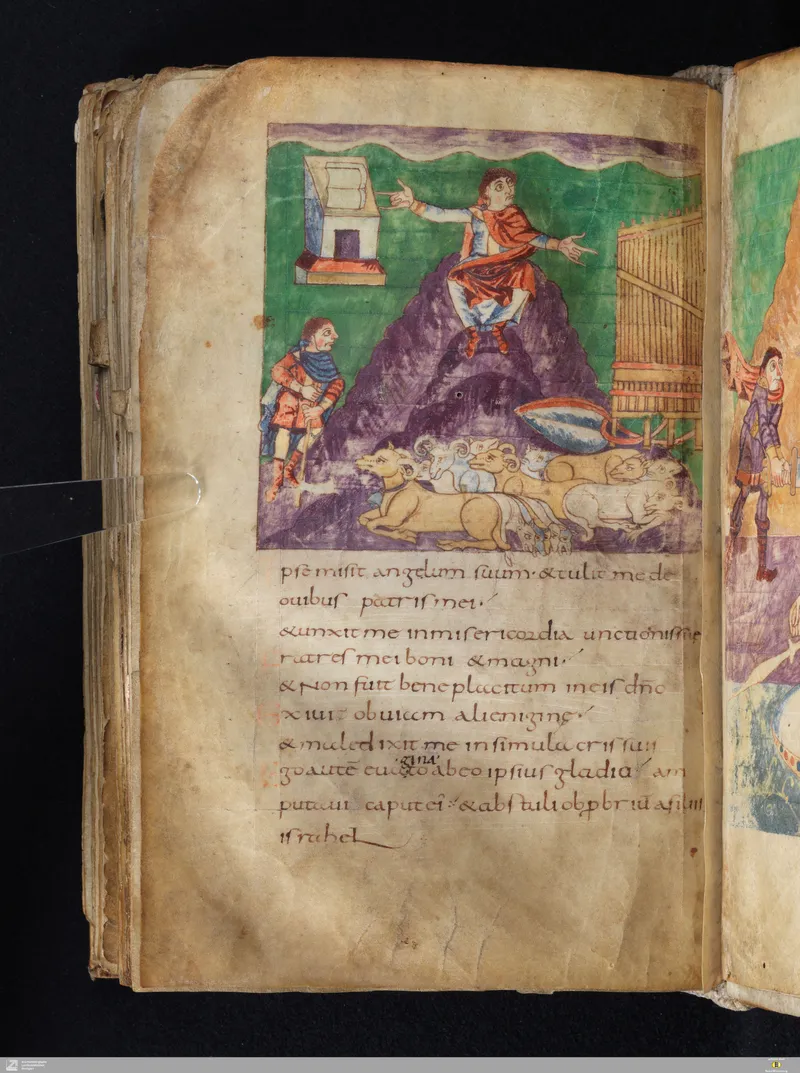 pse misit angelum suum · & tulit me de
ouibus patris mei
& unxit me in misericordia unctionis suę
ratres mei boni & magni
& Non fuit beneplacitum in eis dn̄o
xiui obuiam alieniginę
& maledixit me in simulacris suis
gina
go autē euagito ab eo ipsius gladio am
putaui caput ei & abstuli obprbriū a filiis
israhel